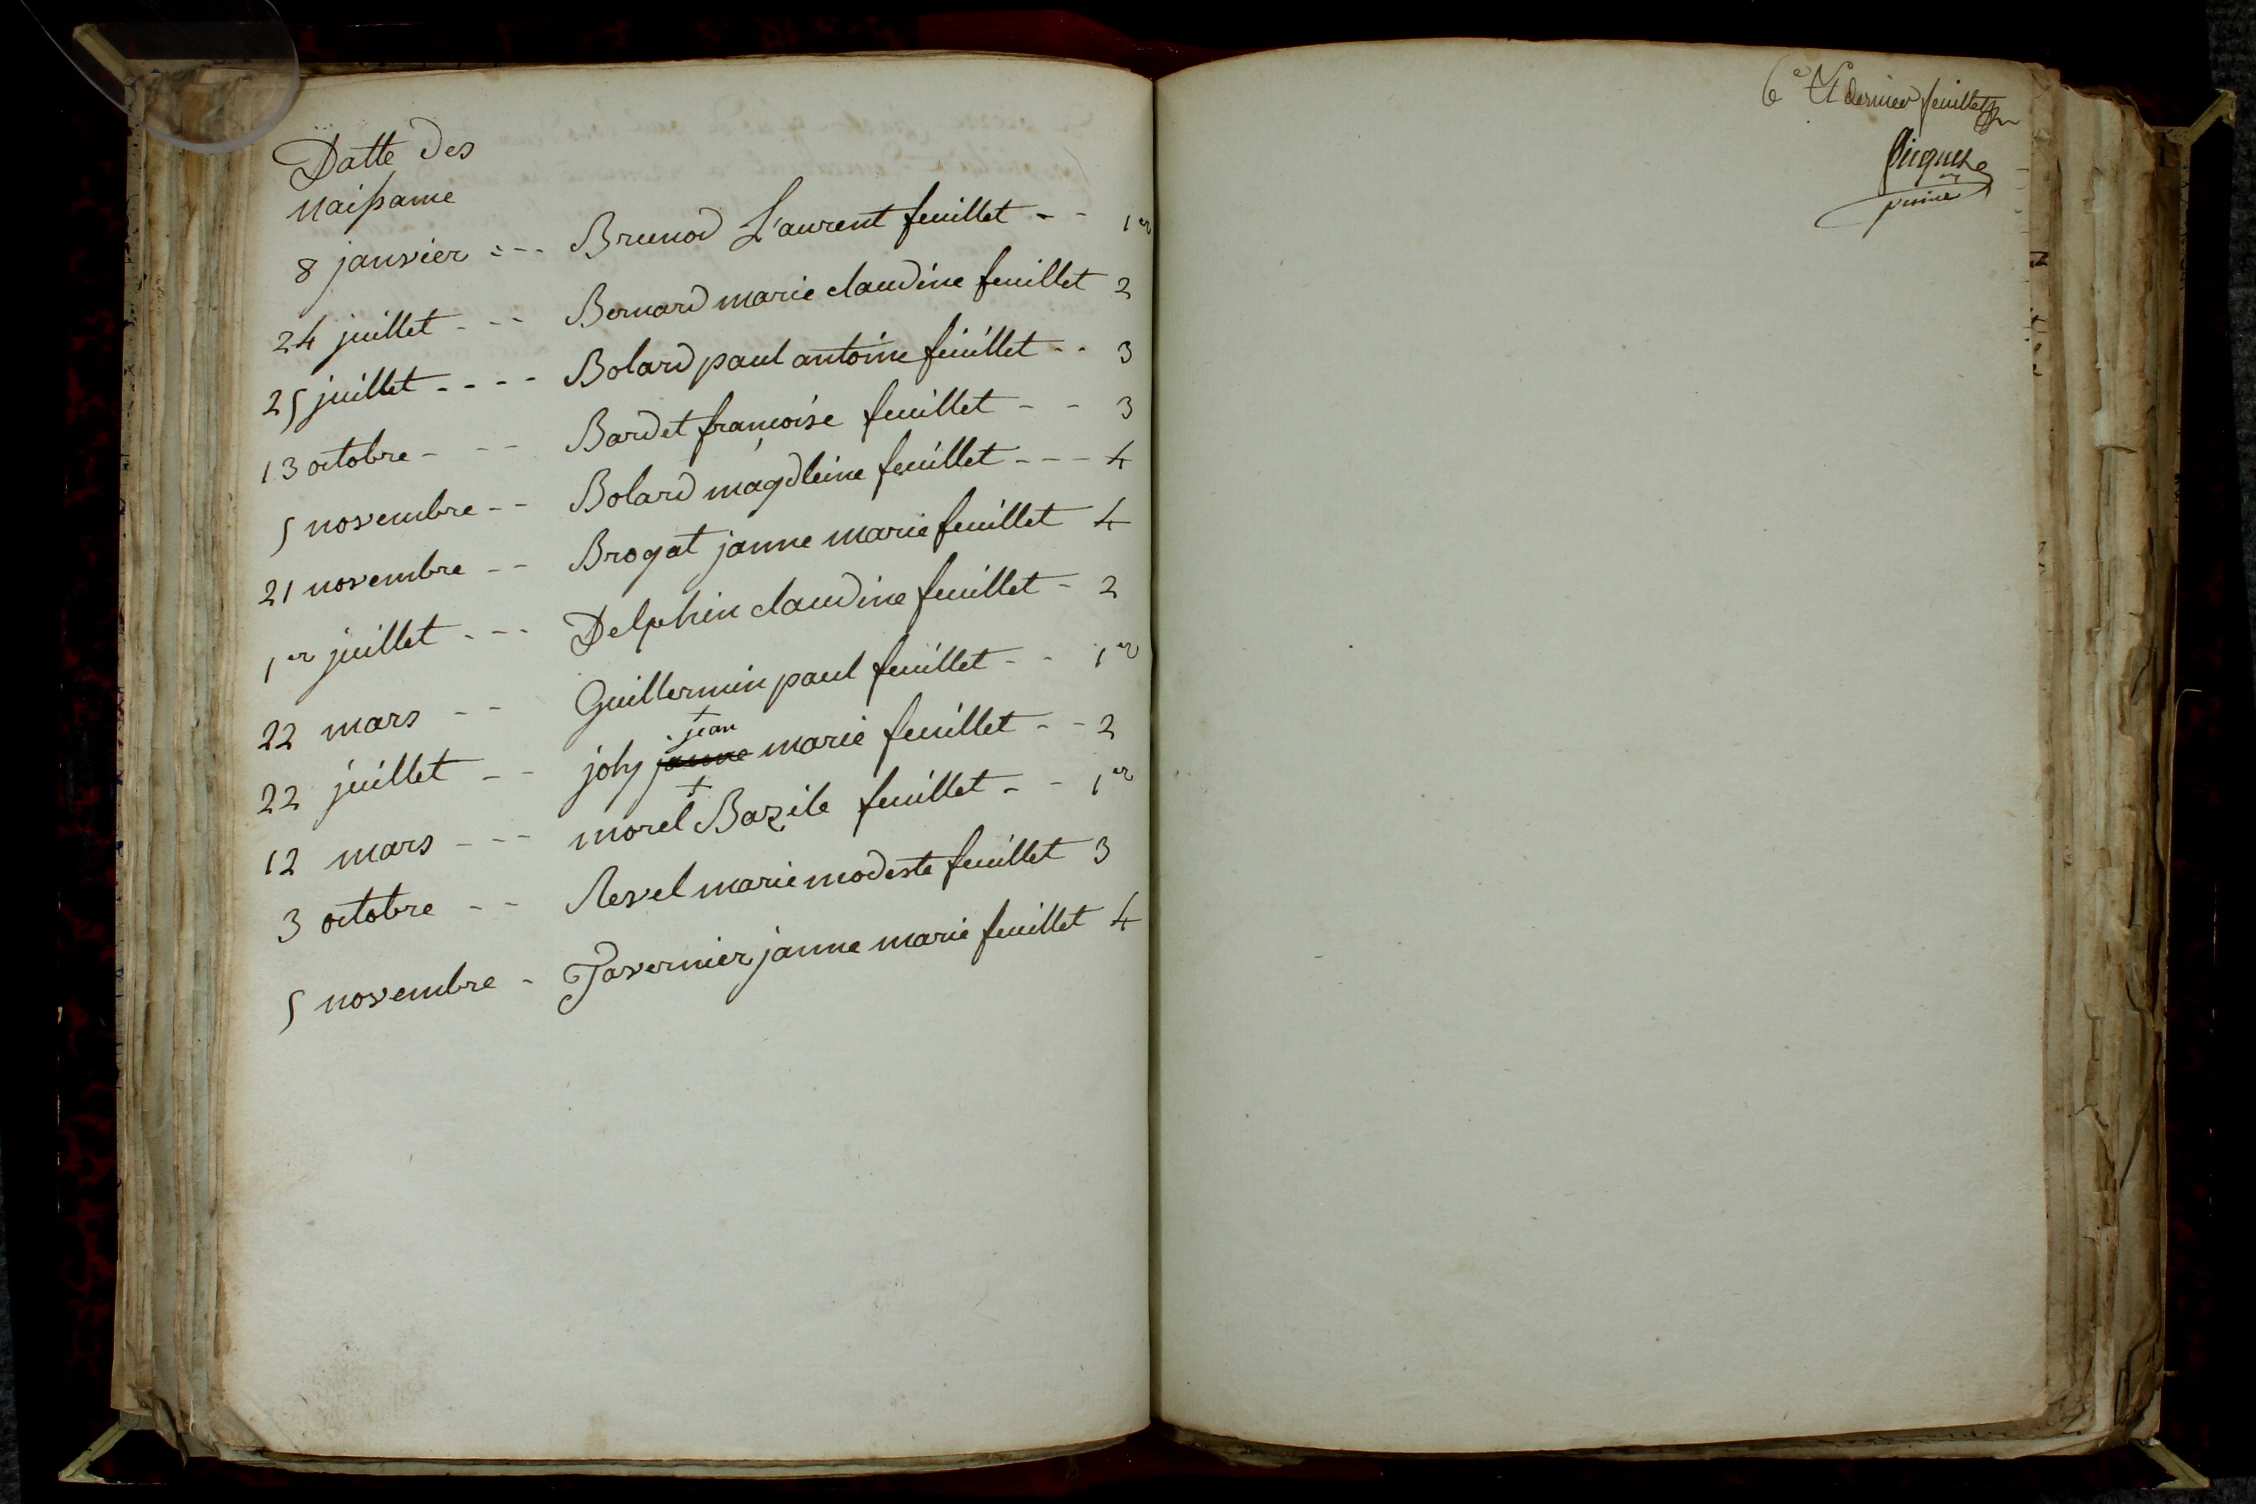 Datte des
naissame
8 janvier --- Brunod Laurent feuillet -- 1er
24 juillet --- Bernard marie claudine feuillet 2
25 juillet ---- Bolard paul antoine feuillet -- 3
13 octobre --- Bardet francoise feuillet -- 3
5 novembre -- Bolard magdleine feuillet --- 4
21 novembre -- Brogat janne marie feuillet 4
1er juillet --- Delphin claudine feuillet - 2
22 mars -- Guillermin paul feuillet -- 1er
jean
22 juillet -- joly janne marie feuillet -- 2
12 mars --- morel Bazile feuillet -- 1er
3 octobre -- Revel marie modeste feuillet 3
5 novembre - Tavernier janne marie feuillet 4
6e Et dernier feuillet